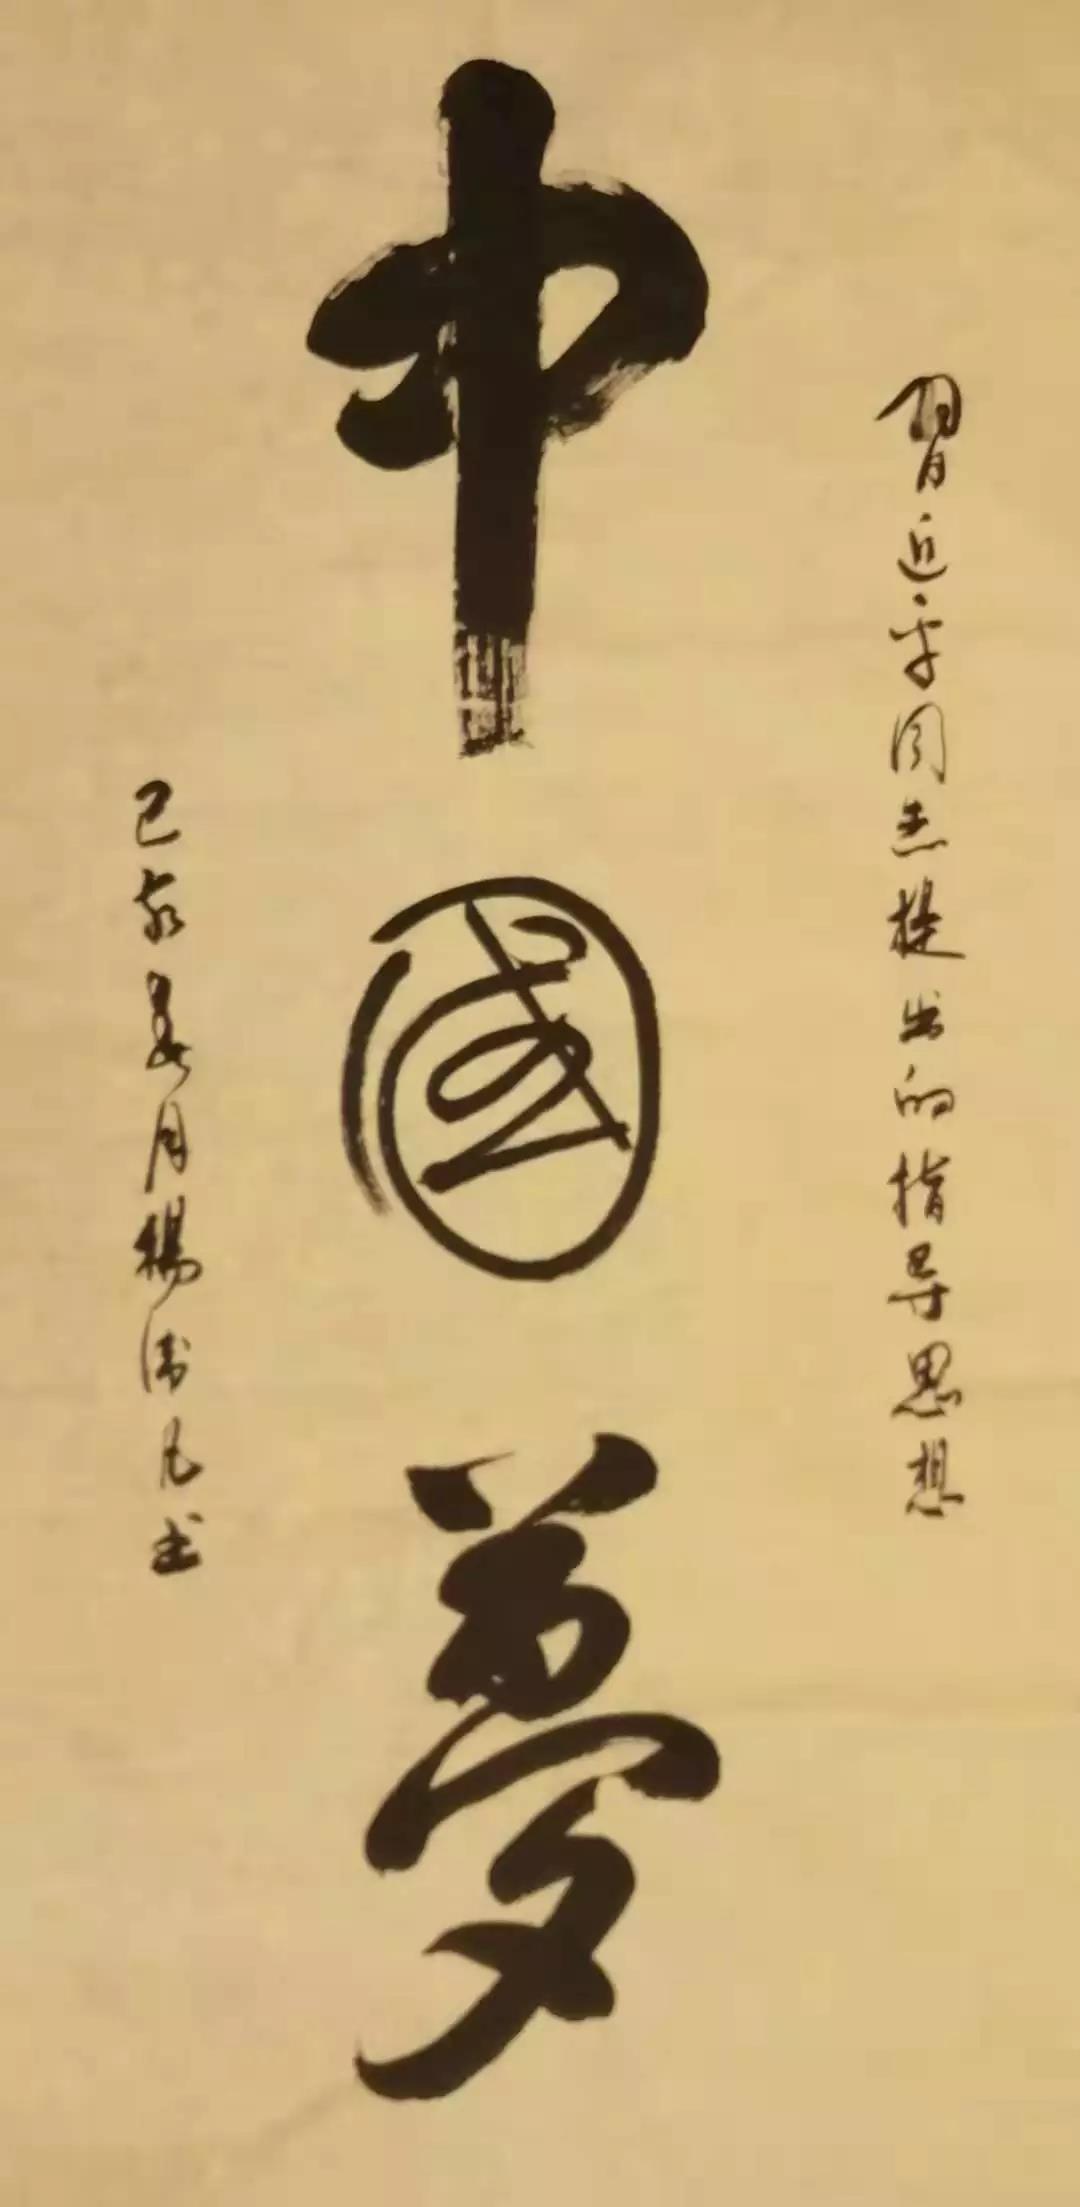 習近平同志提出的指导思想
中國夢
己亥夏月楊凡书